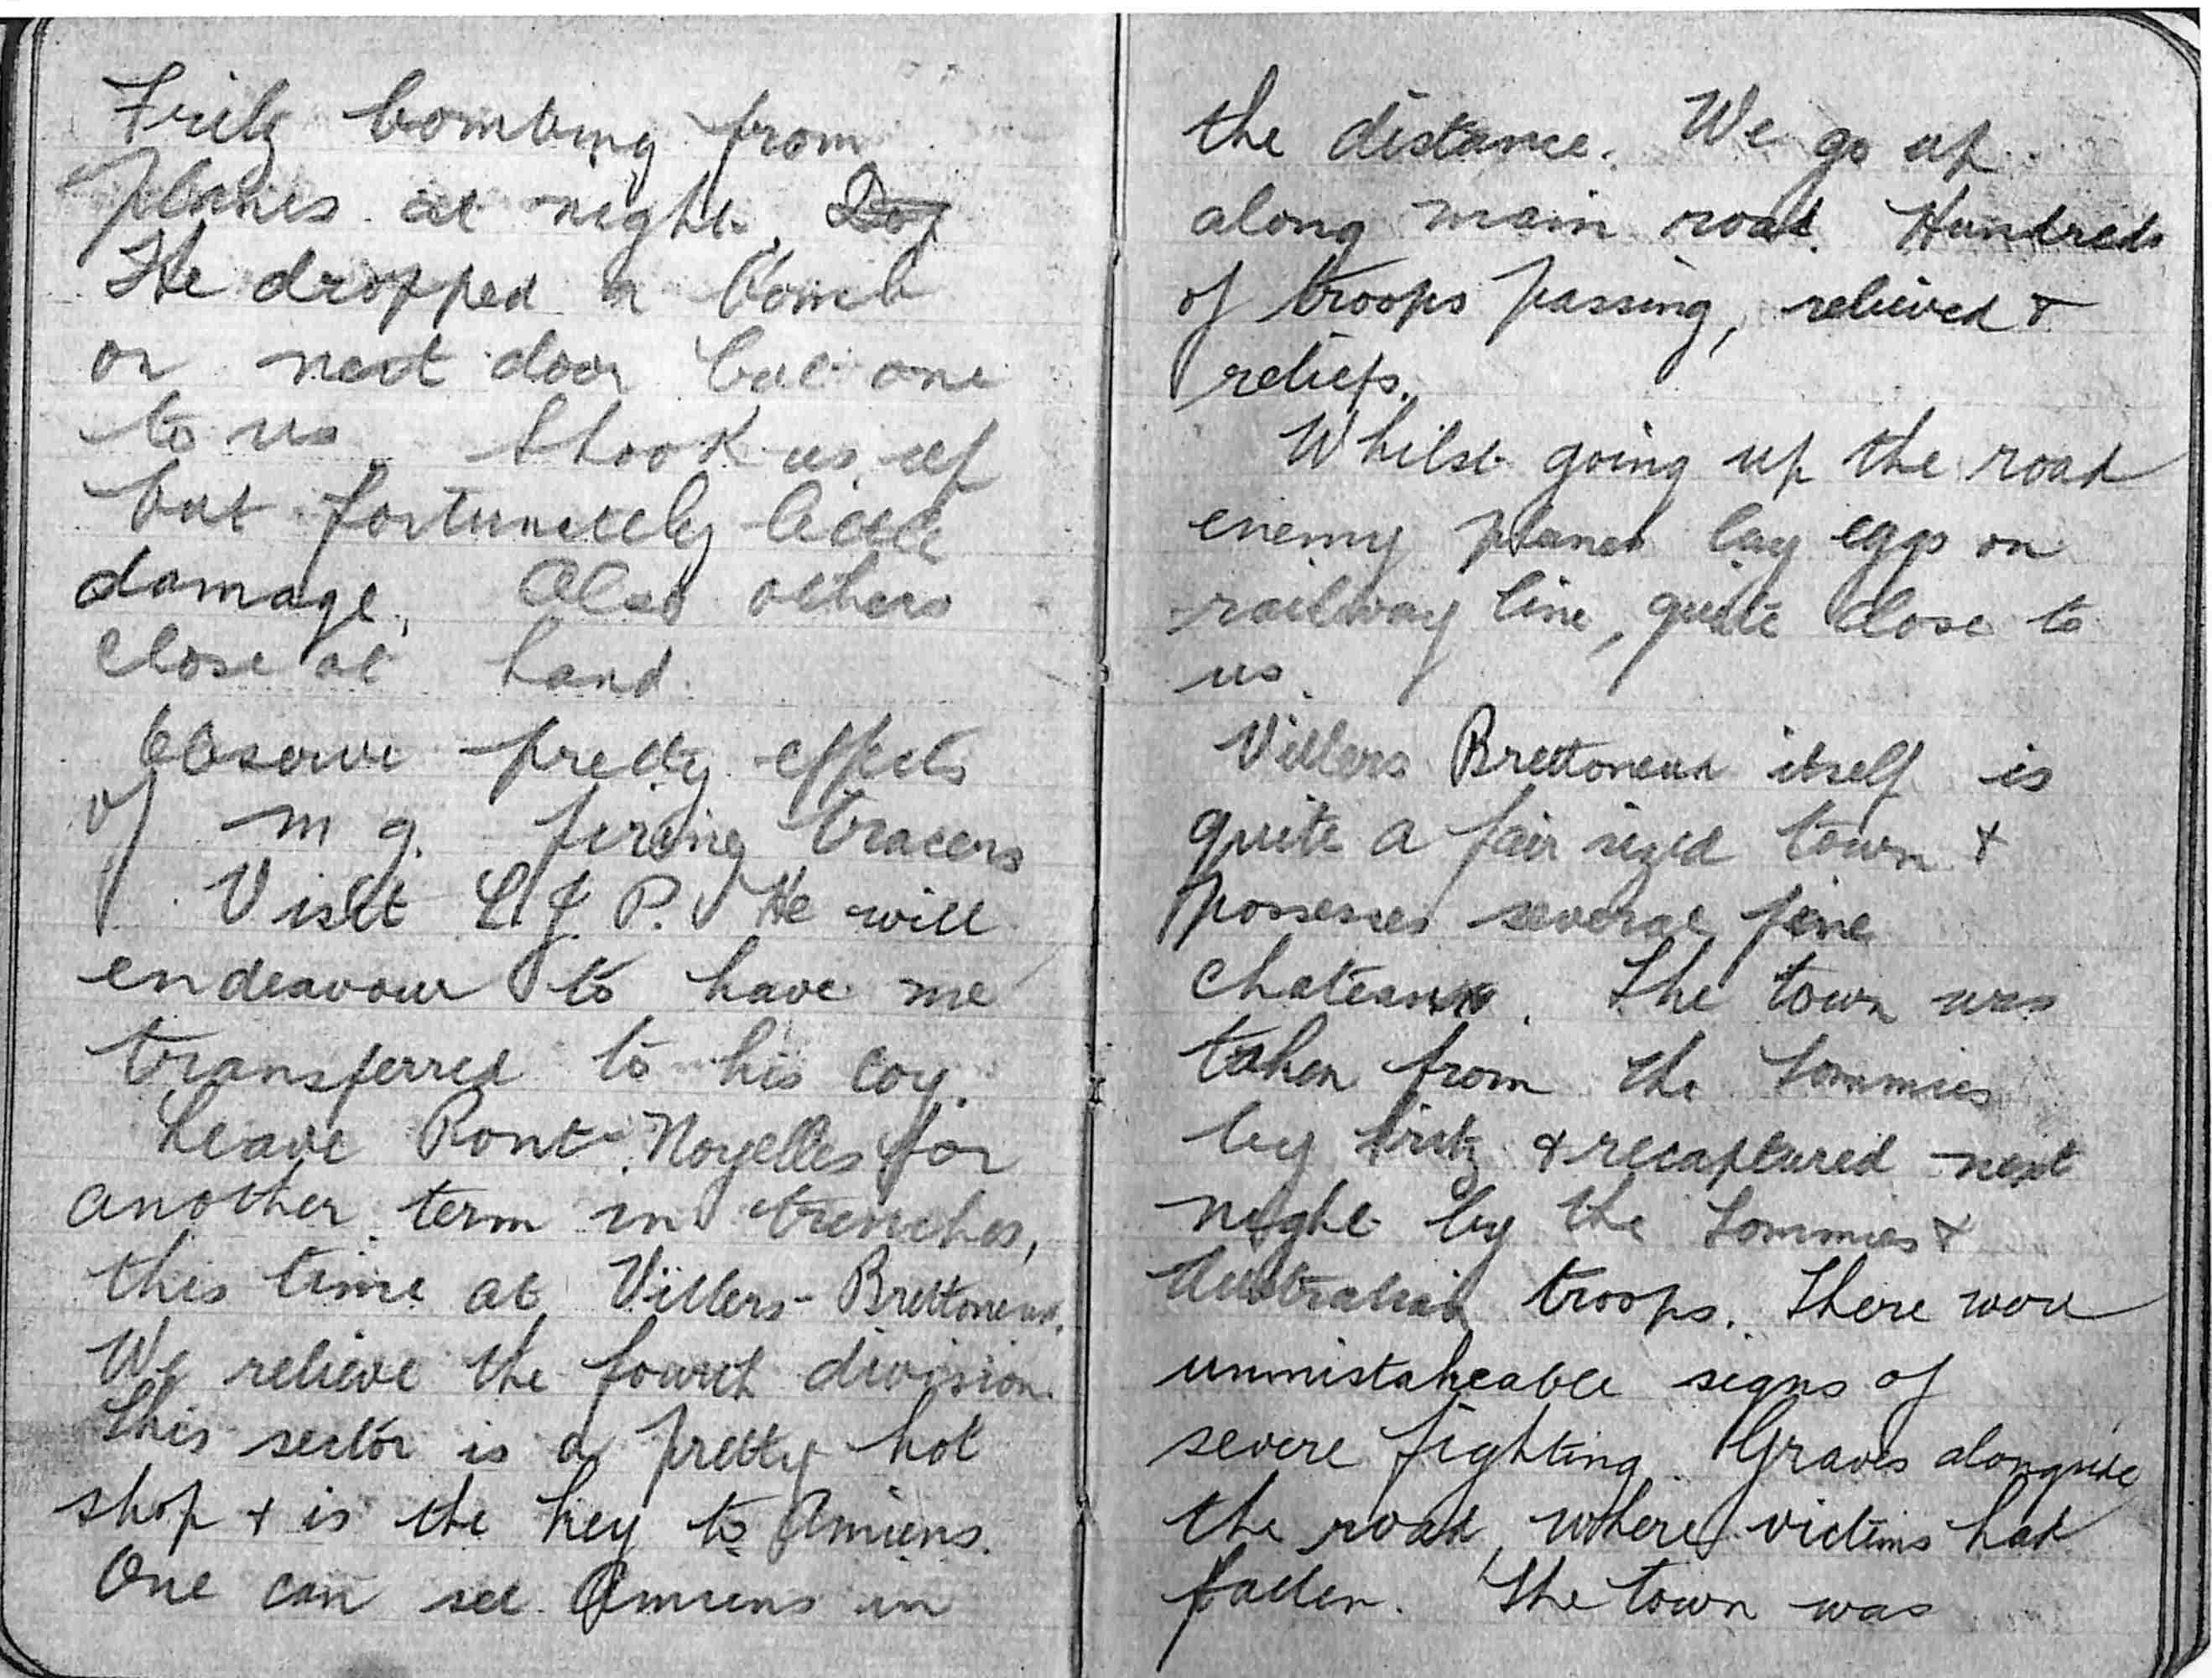 Fritz bombing from
planes at night. Dop
He dropped a bomb
on next door but one
to us. Shook us up
but fortunately little
damage. Also others
close at hand.
Observe pretty effects
of m g. firing tracers
Visit L. J. P. He will
endeavour to have me
transferred to his coy.
Leave Pont Noyelles for
another term in trenches,
this time at Villers-Brettoneux.
We relieve the fourth division.
This sector is a pretty hot
shop + is the key to Amiens.
One can see Amiens in
the distance. We go up
along main road. Hundreds
of troops passing, relieved +
reliefs.
Whilst going up the road
enemy planes lay eggs on
railway line, quite close to
us.
Villers Brettoneux itself is
quite a fair sized town +
possesses several fine
chateaux. The town was
taken from the Tommies
by Fritz + recaptured next
night by the Tommies +
Australian troops. There were
unmistakeable signs of
severe fighting. Graves alongside
the road, where victims had
fallen. The town was